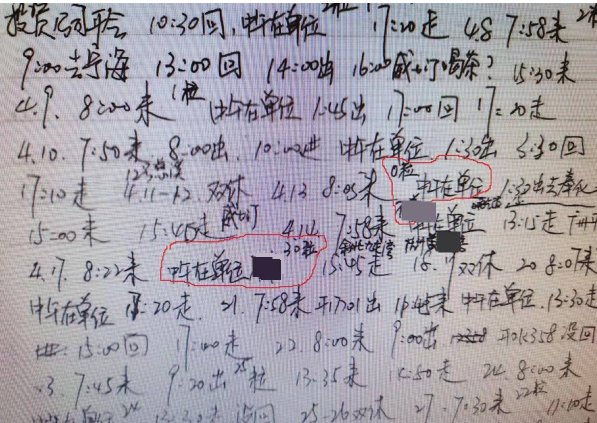 投资公司开会 10:30回,中午在单位 17:20走 4.8 7:58来
9:00去宁海 13:00回 14:00出 16:00 喝茶? 15:30来
4.9. 8:00来 1粒 中午在单位 1:45出 17:00回 17:20走
4.10. 7:50来 8:00出. 10:00进 中午在单位 1:30出 3:30回
17:10走 4.11-12.双休 4.13 8:05来 0粒 中午在单位 1:30出去奉化
15:00来 15:45走 4.14 7:58来 中午在单位 13:15走
4.17. 8:22来 中午在单位 30粒 15:45走 18.19双休 20 8:07来
中午在单位 17:20走. 21. 7:58来 开1701出 16:45来 中午在单位.13:30走
15:00回 17:00走 22. 8:00来 9:00出 开0K358没回
23. 7:45来 9:20出 25粒 13:35来 16:50走 24. 8:00来
中午在单位 24 13:30来 没回 25-26双休 27. 7:30来 22粒 11:10走